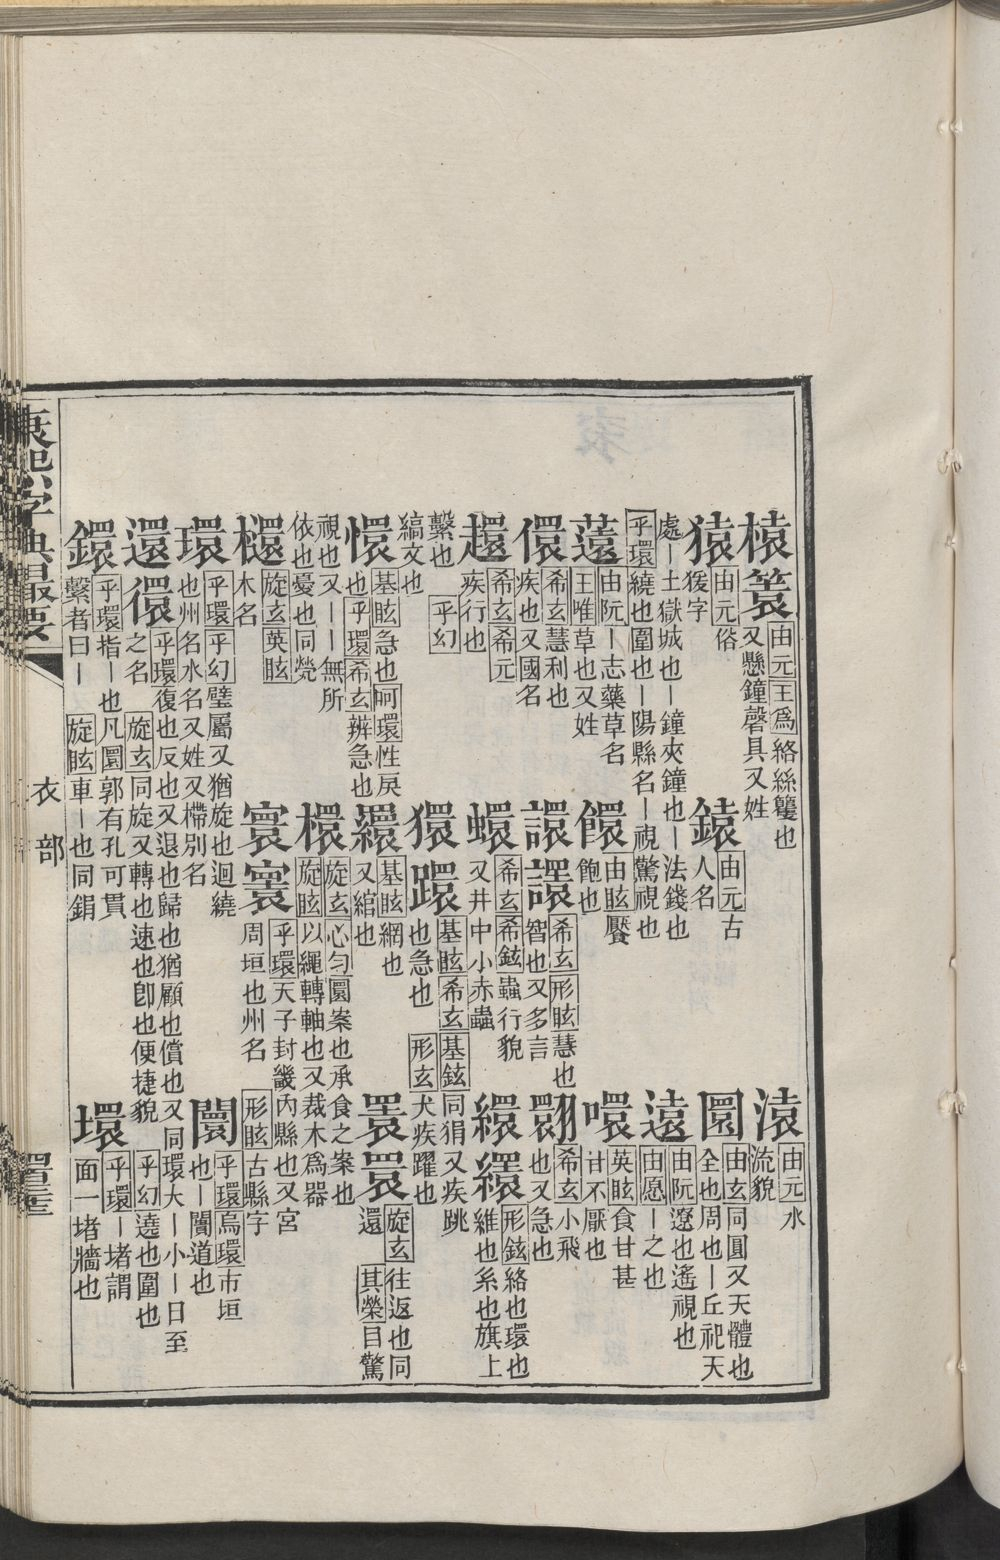 榬䈠 由元 王爲 絡絲籰也又懸鐘磬具又姓 溒 由元 水流貌
猿 由元 俗猨字 鎱 由元 古人名 圜 由玄 同圓又天體也全也周也丨丘祀天
處丨土獄城也丨鐘夾鐘也丨法錢也 乎環 繞也圍也丨陽縣名丨視驚視也 遠 由阮 遼也遙視也 由愿 丨之也
薳 由阮 丨志藥草名 王唯 草也又姓 䭴 由眩 饜飽也 噮 英眩 食甘甚甘不厭也
儇 希玄 慧利也疾也又國名 譞 希玄 形眩 慧也智也又多言 翾 希玄 小飛也又急也
希玄 希元 疾行也 蠉 希玄 希鉉 蟲行貌又井中小赤蟲 繯 形鉉 絡也環也維也系也旗上
繫也 乎幻 縞文也 獧 基眩 希玄 基鉉 同狷又疾跳也急也 形玄 犬疾躍也
懁 基眩 急也 呵環 性戾也 乎環 希玄 辨急也 羂 基眩 網也又綰也 睘瞏 旋玄 往返也同還 其榮 目驚
視也又丨丨無所依也憂也同焭 檈 旋玄 心勻 圜案也承食之案也 旋眩 以繩轉軸也又裁木爲器
旋玄 英眩 木名 寰 乎環 天子封畿內縣也又宮周垣也州名 形眩 古縣字
環 乎環 乎幻 璧屬又猶旋也迴繞也州名水名又姓又櫗別名 闤 乎環 烏環 市垣也丨闠道也
還 乎環 復也反也又退也歸也猶顧也償也又同環大丨小丨日至之名 旋玄 同旋又轉也速也卽也便捷貌 乎幻 遶也圍也
鐶 乎環 指丨也凡圜郭有孔可貫繫者曰丨 旋眩 車丨也同鋗 壞 乎環 丨堵謂面一堵牆也
康熙字典最要
衣部